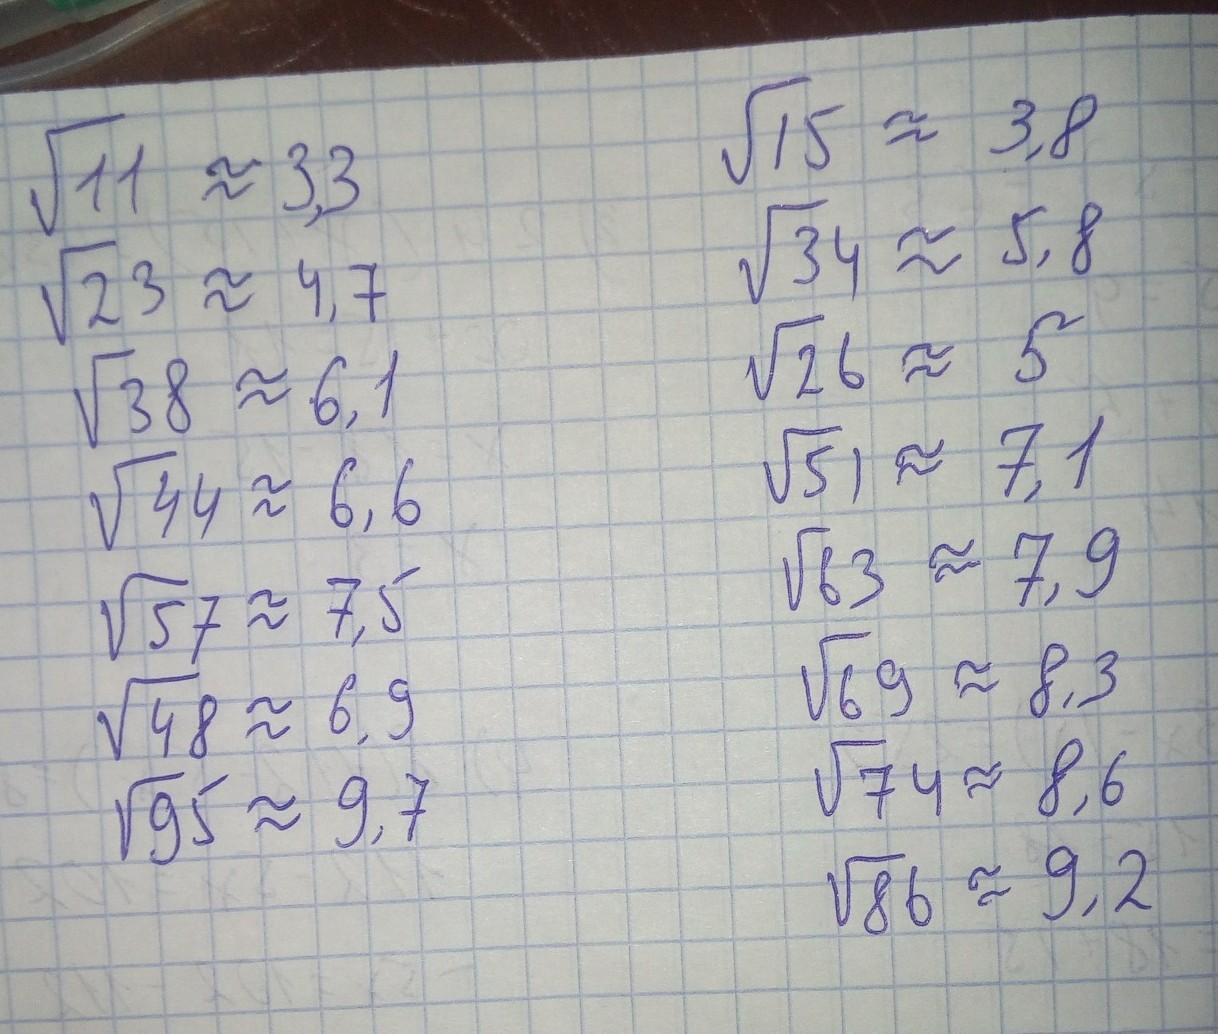 √11 ≈ 3,3
√23 ≈ 4,7
√38 ≈ 6,1
√44 ≈ 6,6
√57 ≈ 7,5
√48 ≈ 6,9
√95 ≈ 9,7
√15 ≈ 3,8
√34 ≈ 5,8
√26 ≈ 5
√51 ≈ 7,1
√63 ≈ 7,9
√69 ≈ 8,3
√74 ≈ 8,6
√86 ≈ 9,2